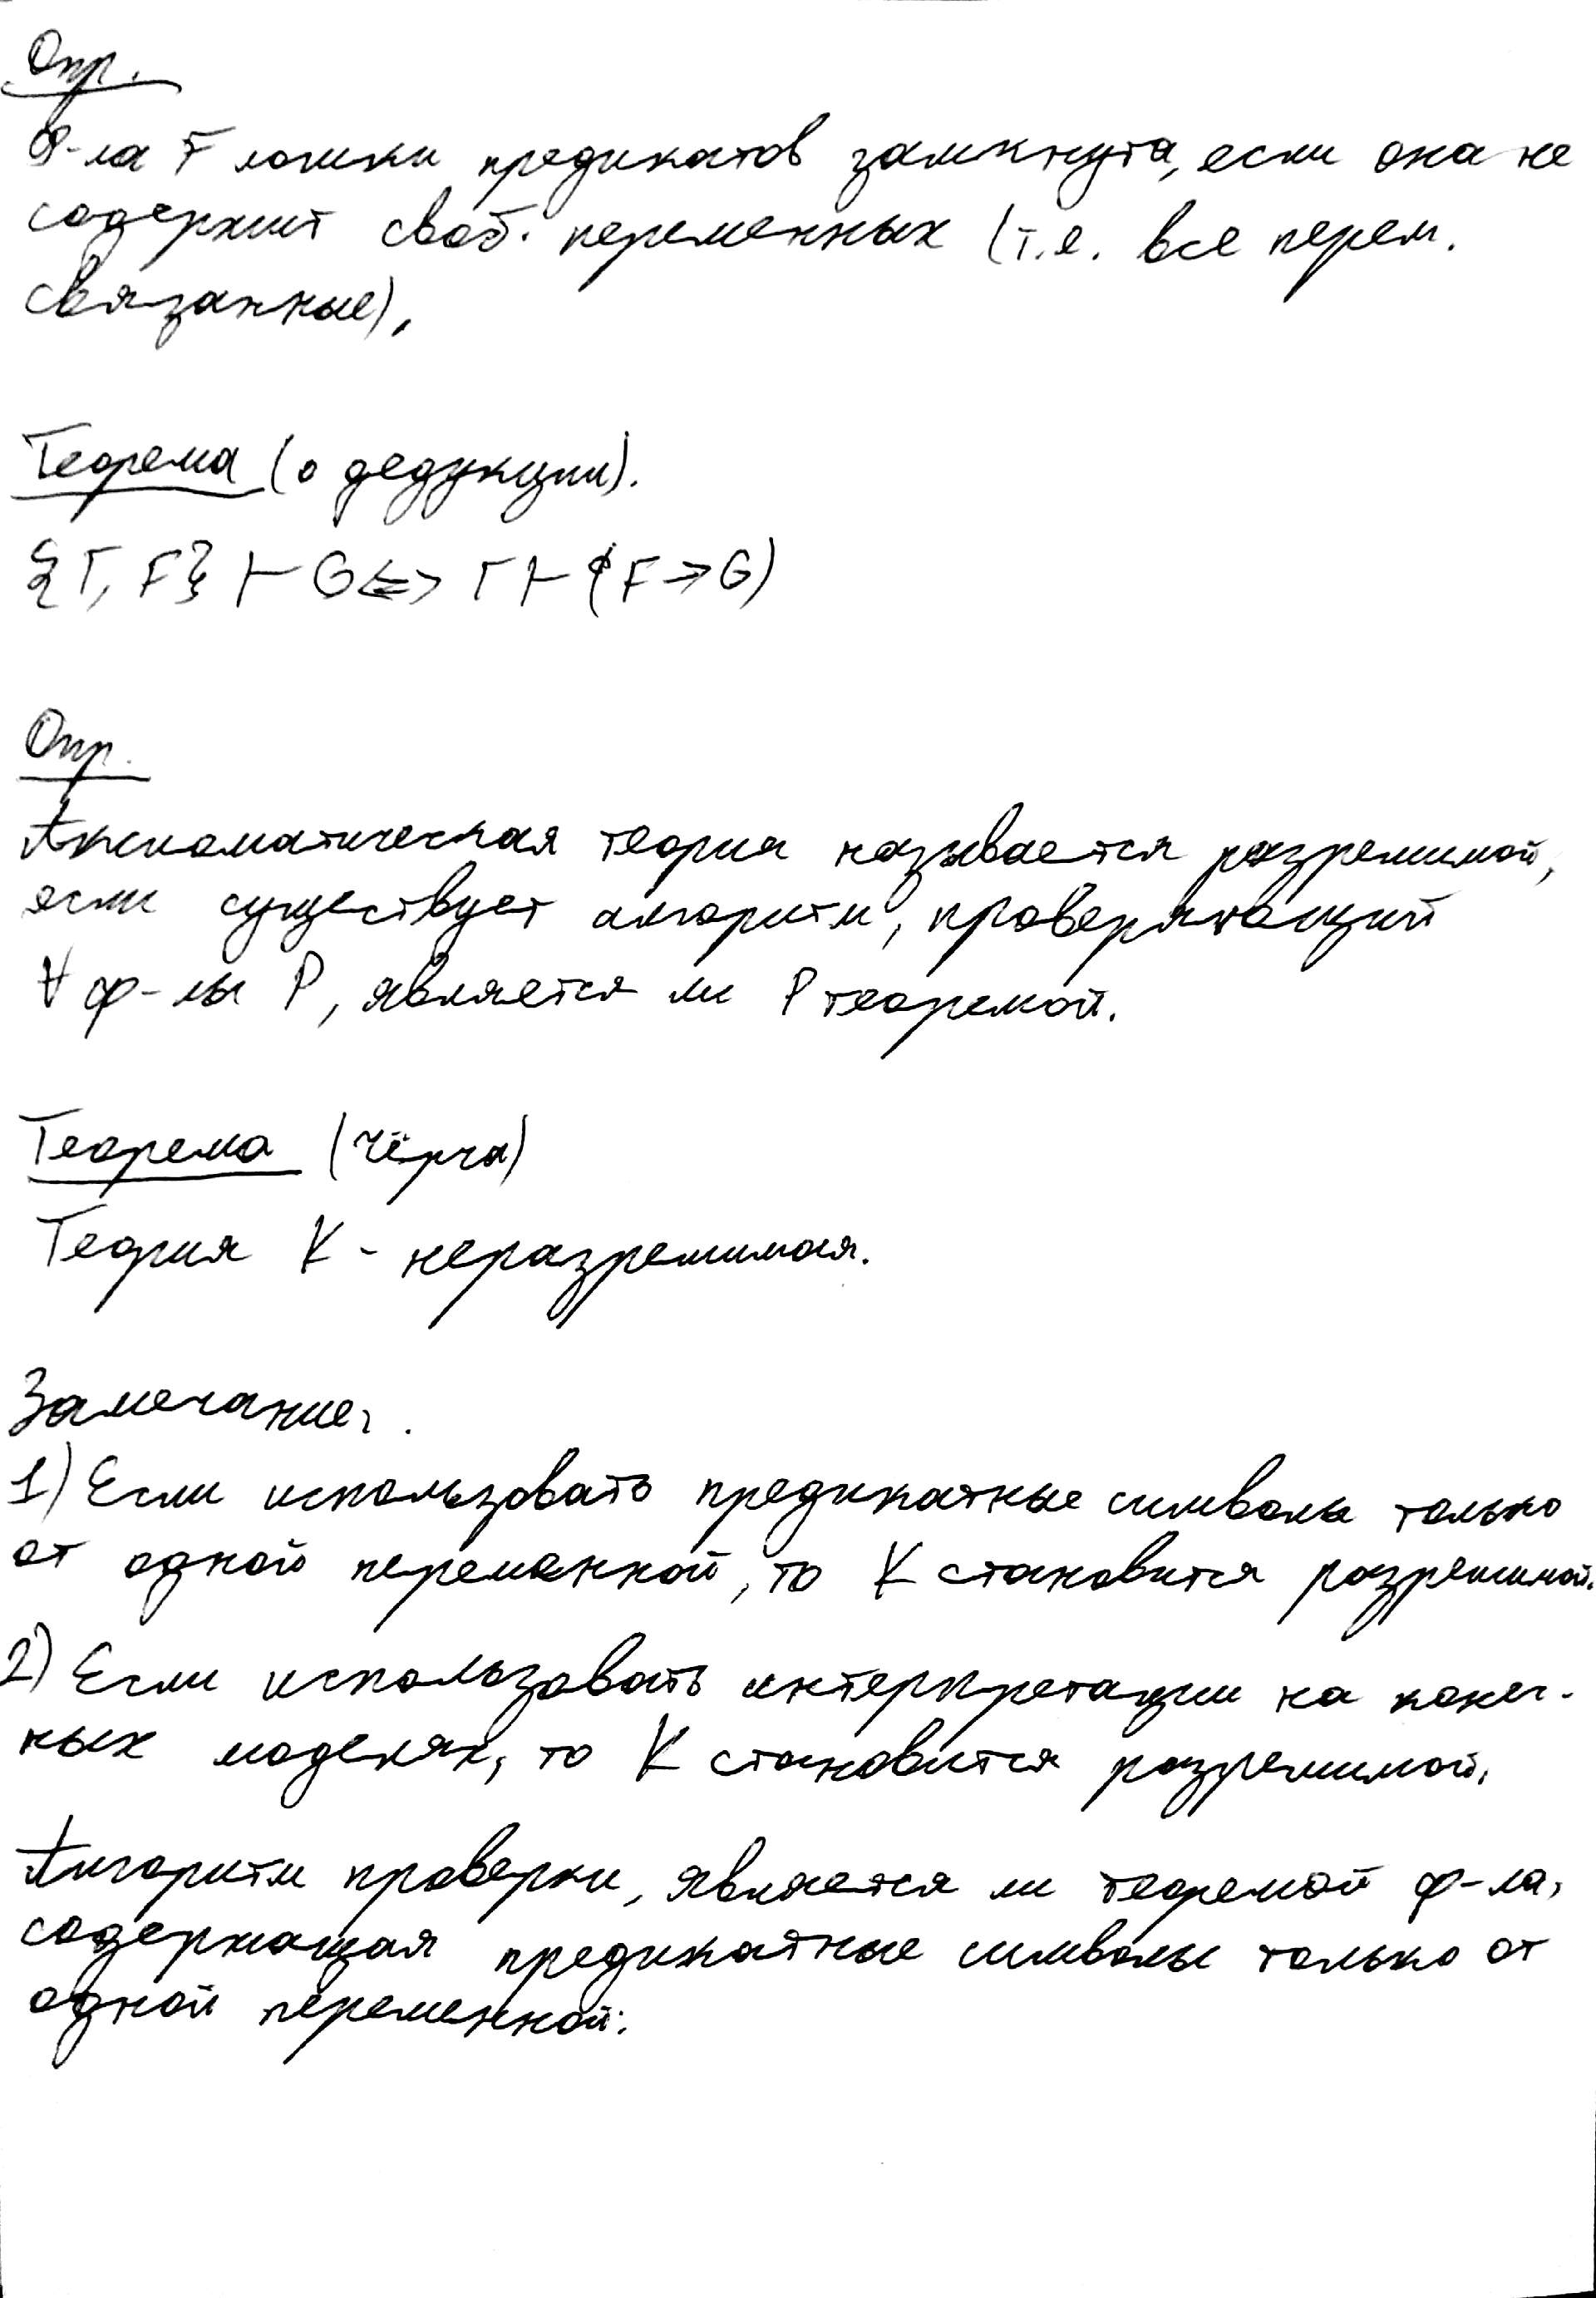 Опр.
Ф-ла F логики предикатов замкнута, если она не
содержит своб. переменных (т.е. все перем.
связанные).
Теорема (о дедукции).
{Г, F} ⊢ G <=> Г ⊢ (F → G)
Опр.
Аксиоматическая теория называется разрешимой,
если существует алгоритм, проверяющий
∀ ф-лы P, является ли P теоремой.
Теорема (Чёрча)
Теория K - неразрешимая.
Замечание.
1) Если использовать предикатные символы только
от одной переменной, то K становится разрешимой.
2) Если использовать интерпретации на конеч-
ных моделях, то K становится разрешимой.
Алгоритм проверки, является ли теоремой ф-ла,
содержащая предикатные символы только от
одной переменной: